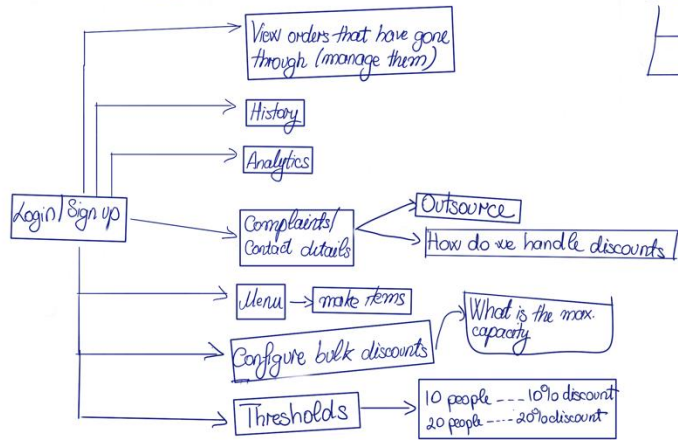 View orders that have gone
through (manage them)
History
Analytics
Login/Sign up
Complaints/
Contact details
Outsource
How do we handle discounts
Menu
make items
Configure bulk discounts
What is the max.
capacity
Thresholds
10 people ---- 10% discount
20 people ---- 20% discount